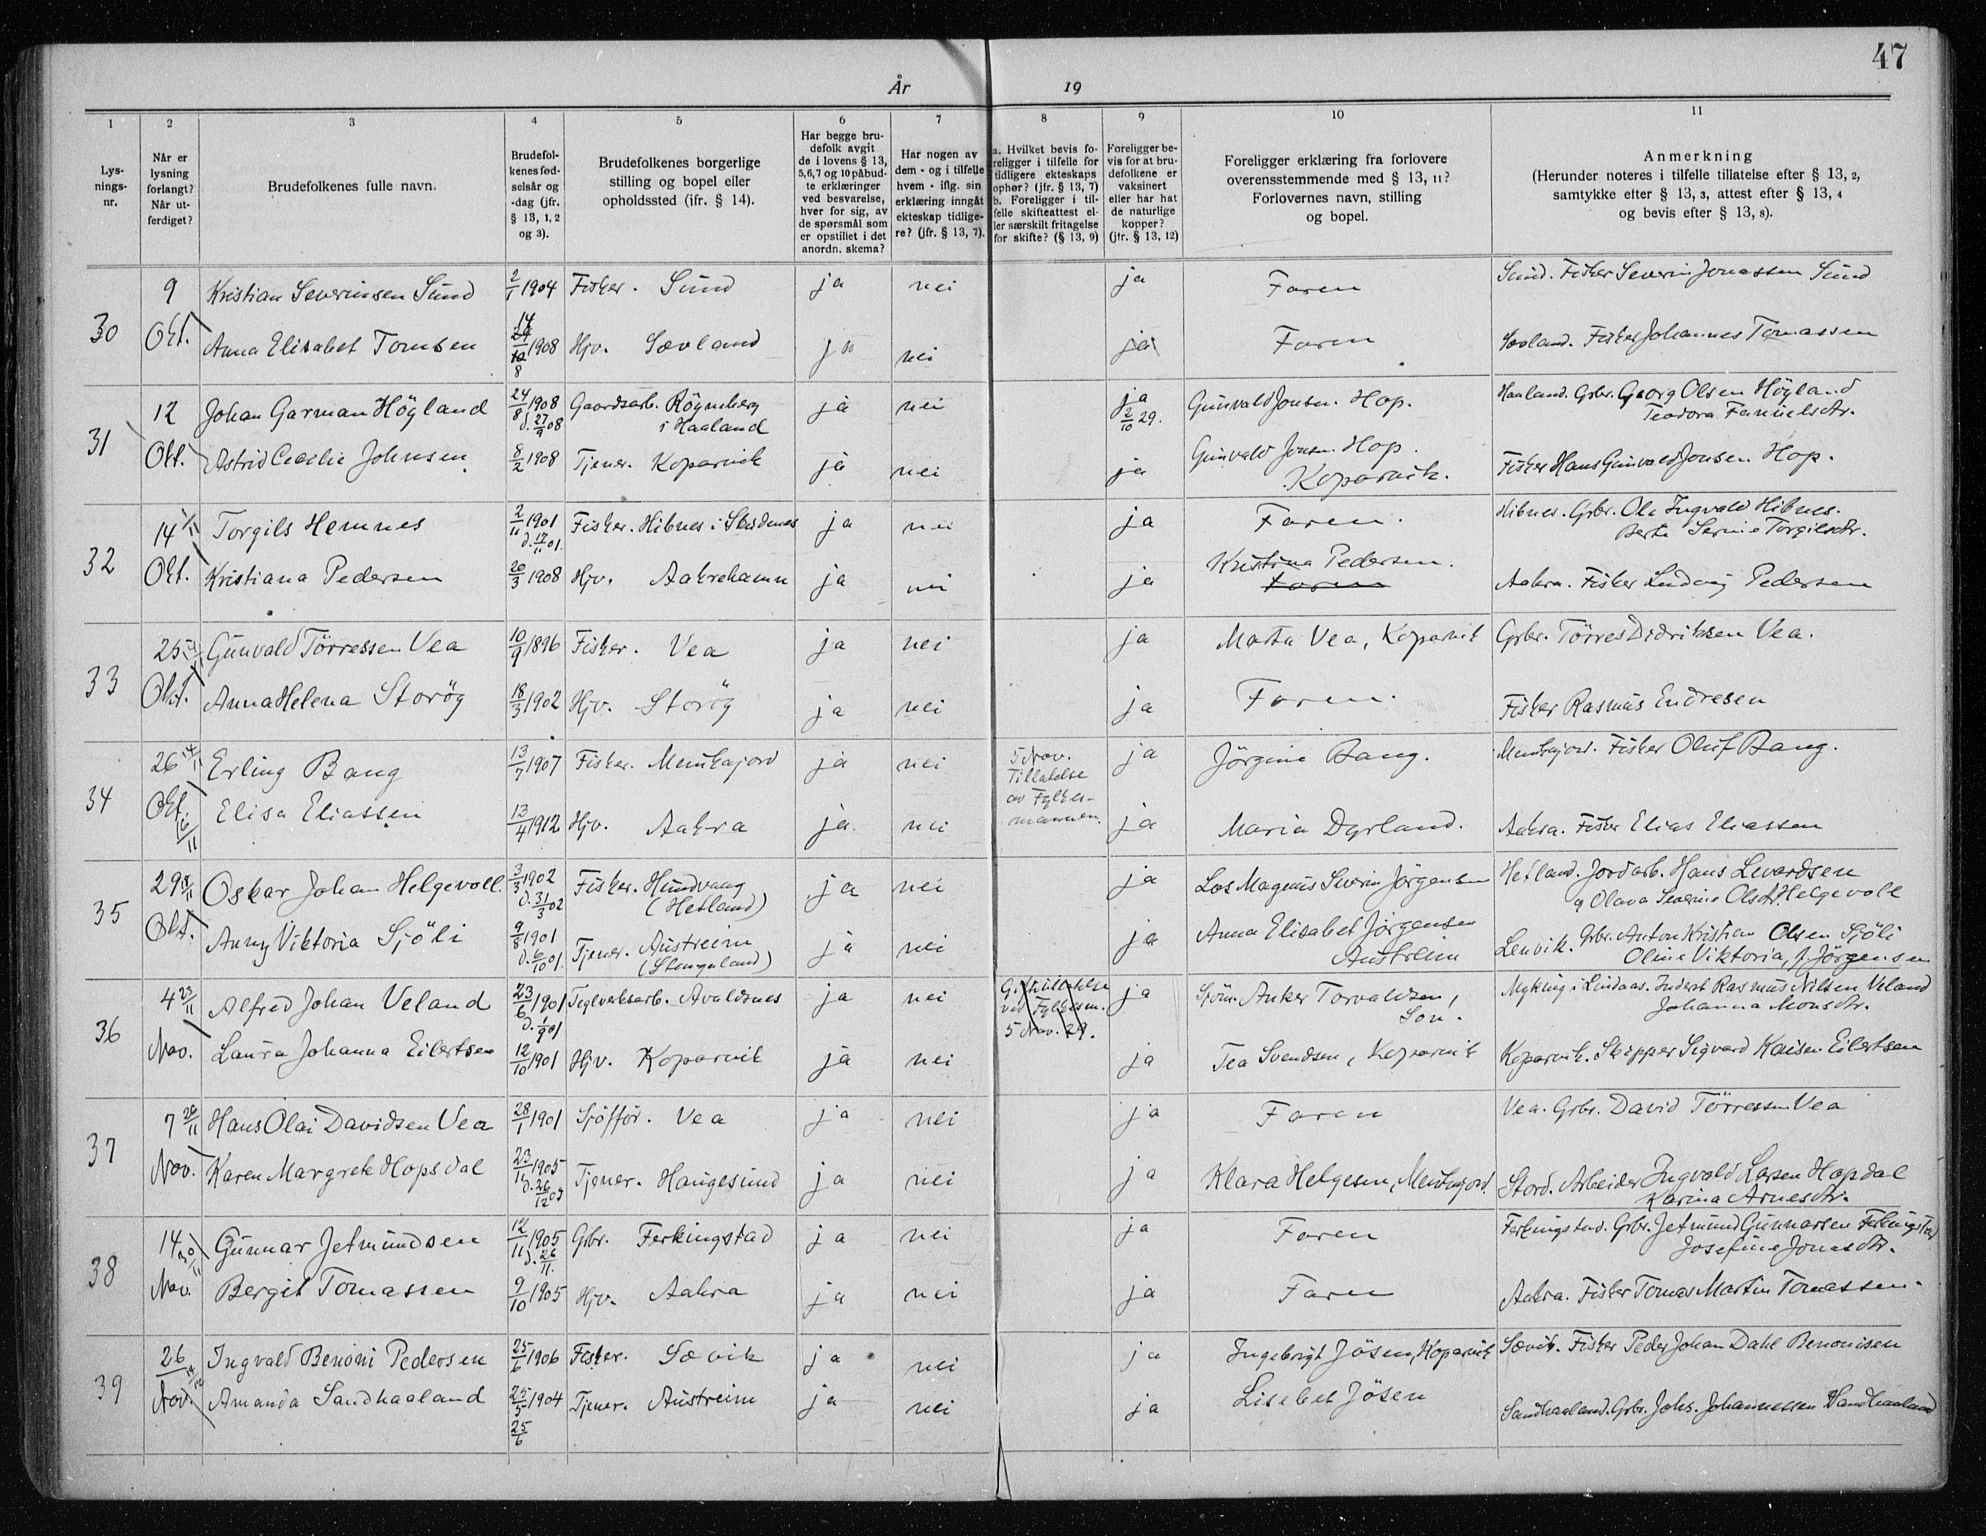 47
År 19
1 2 3 4 5 6 7 8 9 10 11
Lys-
nings-
nr.
Når er
lysning
forlangt?
Når ut-
ferdiget?
Brudefolkenes fulle navn.
Brudefol-
kenes fød-
selsår og
-dag (jfr.
§ 13, 1, 2
og 3).
Brudefolkenes borgerlige
stilling og bopel eller
opholdssted (ifr. § 14).
Har begge bru-
defolk avgit
de i lovens § 13,
5,6,7 og 10 påbud-
te erklæringer
ved besvarelse,
hver for sig, av
de spørsmål som
er opstillet i det
anordn. skema?
Har nogen av
dem - og i tilfelle
hvem - iflg. sin
erklæring inngåt
ekteskap tidlige-
re? (jfr. § 13, 7).
a. Hvilket bevis fo-
religger i tilfelle for
tidligere ekteskaps
ophør? (jfr. § 13, 7)
b. Foreligger i til-
felle skifteattest el-
ler særskilt fritagelse
for skifte? (§ 13, 9)
Foreligger be-
vis for at bru-
defolkene er
vaksinert
eller har hat
de naturlige
kopper?
(jfr. § 13, 12)
Foreligger erklæring fra forlovere
overensstemmende med § 13, 11?
Forlovernes navn, stilling
og bopel.
Anmerkning
(Herunder noteres i tilfelle tillatelse efter § 13, 2,
samtykke efter § 13, 3, attest efter § 13, 4
og bevis efter § 13, 8).
30 9 Kristian Severinsen Sund 2/1 1904 Fisker. Sund ja nei ja Faren Sund. Fisker Severin Jonassen Sund
Okt. Anna Elisabet Tomsen 14/8 1908 Hjv. Sævland ja nei ja Faren Sævland. Fisker Johannes Tomassen
31 12 Johan Garman Högland 24/8 1908 Gaardsarb. Rögneberg ja nei ja Gunvald Jonsen. Hop. Haaland. Grbr. Georg Olsen Högland
d. 27/9 08 i Haaland 2/10 29. Teodora Fanuelsdtr.
Okt. Astrid Cecilie Johnsen 8/2 1908 Tjener. Kopervik ja nei ja Gunvald Jonsen Hop. Fisker Hans Gunvald Jonsen Hop.
Kopervik.
32 14 1/11 Torgils Hemnes 2/11 1901 Fisker. Hibnes i Skudenes ja nei ja Faren. Hibnes. Grbr. Ole Ingvald Hibnes.
d. 17/11 01. Berte Serine Torgilsdtr.
Okt. Kristiana Pedersen 20/3 1908 Hjv. Aakrehamn ja nei ja Kristina Pedersen. Aakra. Fisker Ludvig Pedersen
Faren
33 25 Gunvald Törressen Vea 10/9 1896 Fisker. Vea ja nei ja Marta Vea, Kopervik Grbr. Törres Didriksen Vea.
Okt. Anna Helena Storög 18/3 1902 Hjv. Storög ja nei ja Faren. Fisker Rasmus Endresen
34 26 14/11 Erling Bang 13/7 1907 Fisker. Munkajord ja nei 5 Nov. ja Jörgine Bang. Munkajord. Fisker Oluf Bang.
Tillatelse
av Fylkes-
mannen.
Okt. 16/11 Elisa Eliassen 13/4 1912 Hjv. Aakra ja nei ja Maria Dyrland. Aakra. Fisker Elias Eliassen
35 29 Oskar Johan Helgevoll. 3/3 1902 Fisker. Hundvaag ja nei ja Lars Magnus Sverin Jörgensen Hetland. Jordarb. Hans Levardsen
d. 31/3 02 (Hetland) og Olava Severine Olsdtr. Helgevoll
Okt. Anny Viktoria Sjöli 9/8 1901 Tjener. Austreim ja nei ja Anna Elisabet Jörgensen Lenvik. Grbr. Anton Kristian Olsen Sjöli
d. 6/10 01. (Stangeland) Austreim Oline Viktoria, f. Jörgensen
36 4 23/11 Alfred Johan Veland 23/6 1901 Teglverksarb. Avaldsnes ja nei ja Sjöm. Anker Torvaldsen, Myking i Lindaas. Inderst Rasmus Nilsen Veland
d. 1/9 01 ved Fylkesm. Son. Johanna Monsdtr.
5 Nov. 29.
Nov. Laura Johanna Eilertsen 12/10 1901 Hjv. Kopervik ja nei ja Tea Svendsen, Kopervik Kopervik. Skipper Sigvard Kaisen Eilertsen
37 7 20/11 Hans Olai Davidsen Vea 28/1 1901 Sjöfför. Vea ja nei ja Faren Vea. Grbr. David Törressen Vea
Nov. Karen Margrete Hopsdal 23/11 1905 Tjener. Haugesund ja nei ja Klara Helgesen, Munkajord. Stord. Arbeider Ingvald Larsen Hopdal
d. 26/12 05 Karina Arnesdtr.
38 14 30/11 Gunnar Jetmundsen 12/11 1905 Grbr. Ferkingstad ja nei ja Faren Ferkingstad. Grbr. Jetmund Gunnarsen Ferkingstad
d. 26/11. Josefine Jonasdtr.
Nov. Bergit Tomassen 9/10 1905 Hjv. Aakra ja nei ja Faren Aakra. Fisker Tomas Martin Tomassen.
39 26 Ingvald Benoni Pedersen 25/6 1906 Fisker. Sævik ja nei ja Ingebrigt Jösen, Kopervik Sævik. Fisker Peder Johan Dahl Benonisen
Nov. Amanda Sandhaaland 25/5 1904 Tjener. Austreim ja nei ja Lisebet Jösen Sandhaaland. Grbr. Johs. Johannessen Sandhaaland
25/6